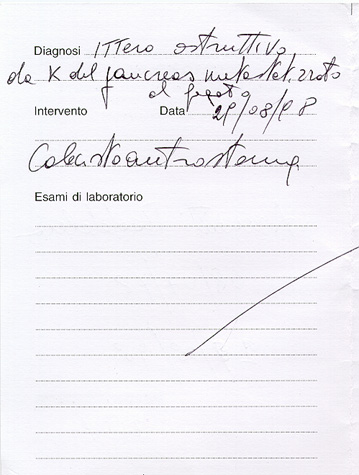 Diagnosi Ittero ostruttivo
da K del pancreas metastatizzato
al fegato
Intervento Data 29/08/98
Colecistoantrostomia
Esami di laboratorio